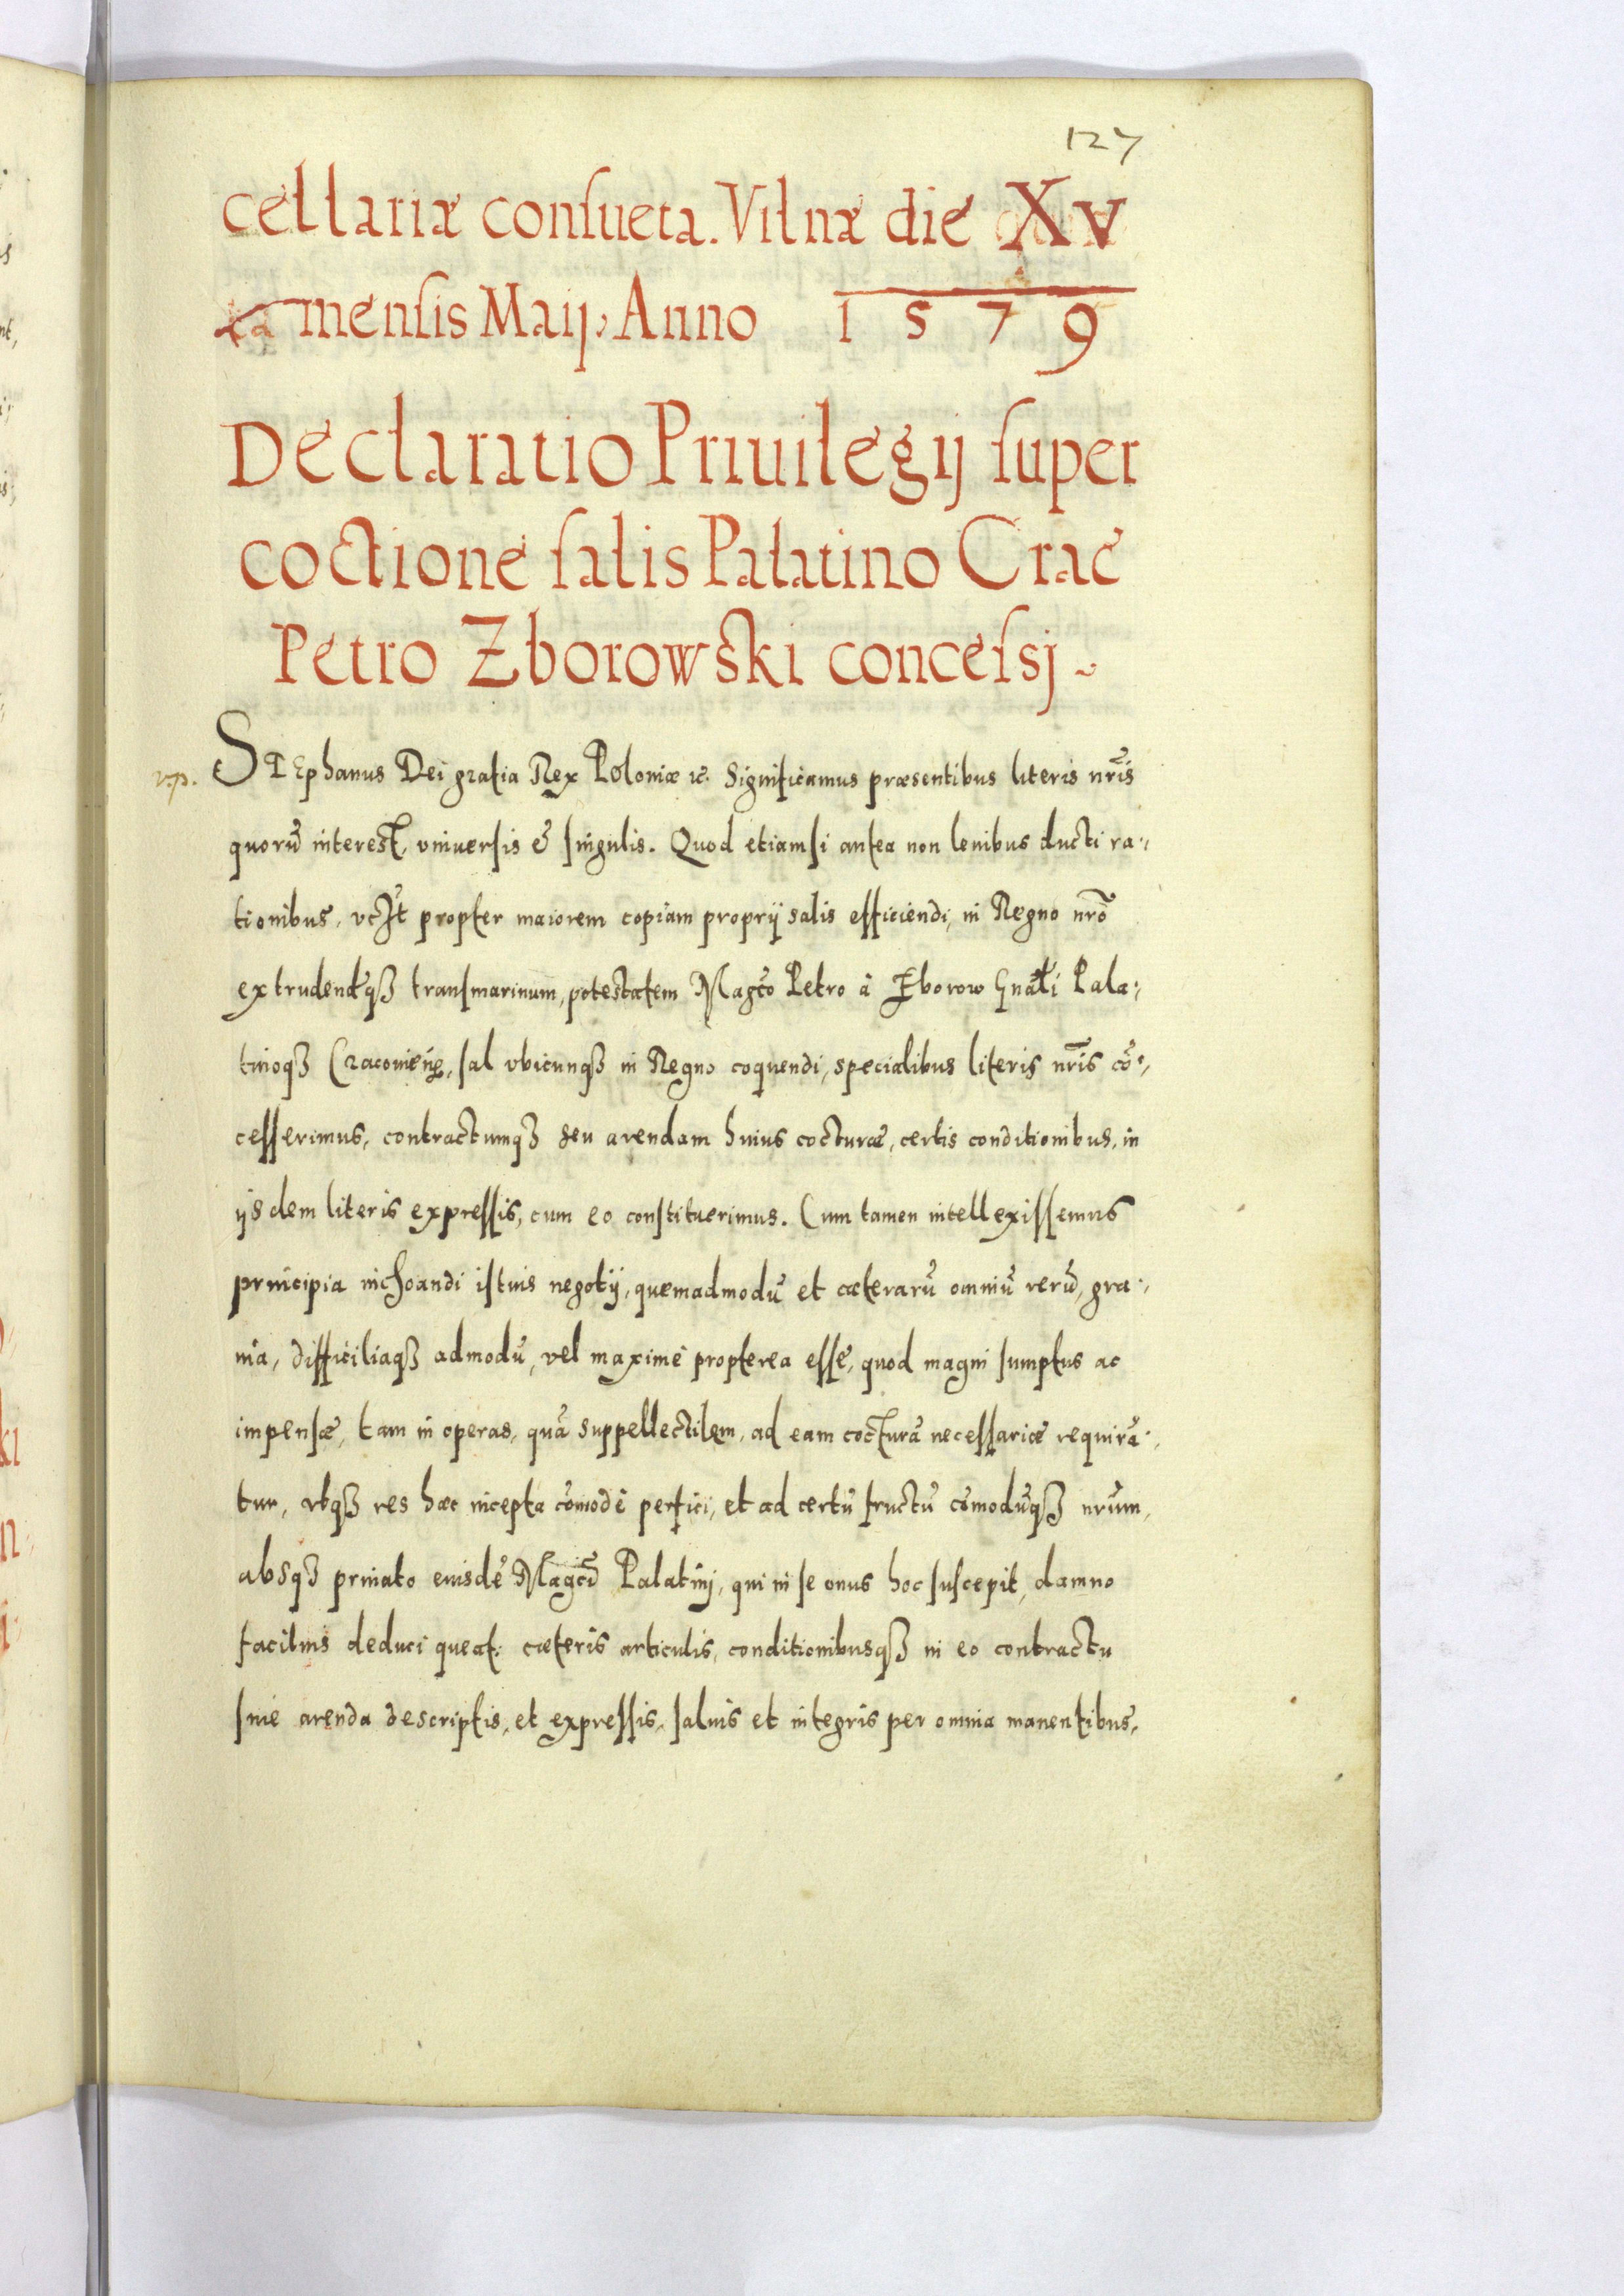 127
cellariæ consueta. Vilnæ die Xv
mensis Maij. Anno 1579
Declaratio Priuilegij super
coctione salis Palatino Crac
Petro Zborowski concessj
v.p.
STEphanus Dei gratia Rex Poloniæ &c. Significamus præsentibus literis nr̃is
quorũ interest, vniuersis & singulis. Quod etiamsi antea non lenibus ducti ra-
tionibus, propter maiorem copiam proprij salis efficiendi, in Regno nrõ
extrudendiq3 transmarinum, potestatem Magcõ Petro â Zborow Gnãli Pala-
tinoq3 Cracovieñ, sal vbicunq3 in Regno coquendi, specialibus literis nr̃is cõ-
cesserimus, contractumq3 seu arendam huius cocturæ, certis conditionibus, in
ijsdem literis expressis, cum eo constituerimus. Cum tamen intellexissemus
principia inchoandi istuis negotij, quemadmodũ et cæterarũ omniũ rerũ, gra-
uia, difficiliaq3 admodũ, vel maximè propterea esse, quod magni sumptus ac
impensæ, tam in operas, quã suppellectilem, ad eam cocturã necessariæ requirã-
tur, vtq3 res hæc incepta cõmodè perfici, et ad certũ fructũ cõmodũq3 nr̃um,
absq3 priuato eiusdẽ Magcĩ Palatinj, qui in se onus hoc suscepit, damno
facilius deduci queat: cæteris articulis, conditionibusq3 in eo contractu
siue arenda descriptis, et expressis, saluis et integris per omnia manentibus,